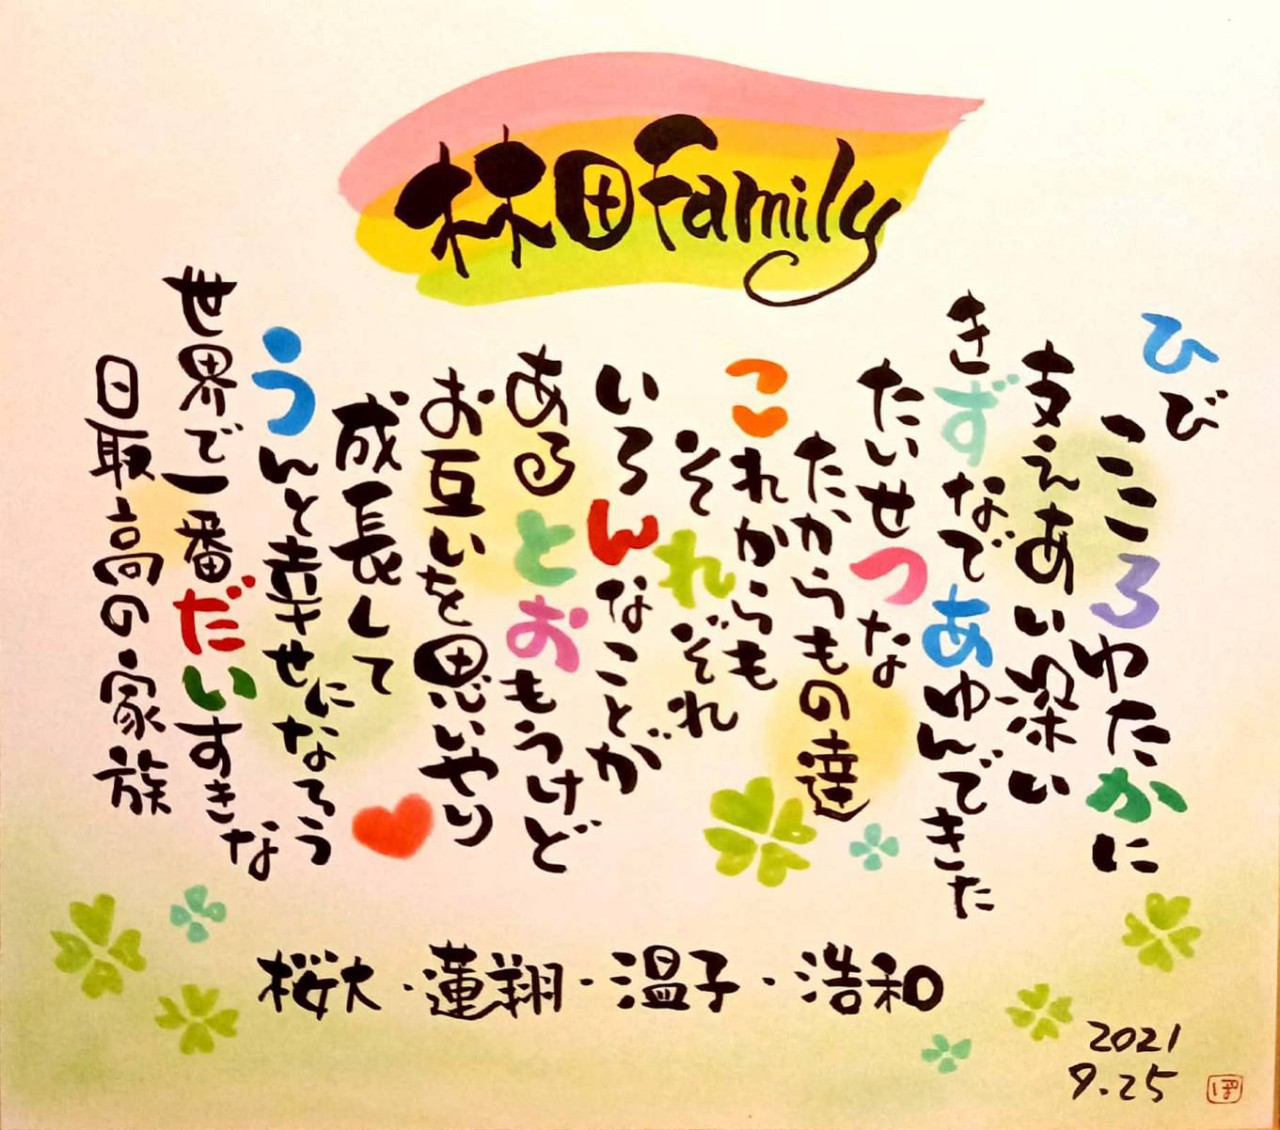 林田Family
ひび
こころゆたかに
支えあい深い
きずなであゆんできた
たいせつな
たからもの達
これからも
それぞれ
いろんなことが
あるとおもうけど
お互いを思いやり
成長して
うんと幸せになろう
世界で一番だいすきな
日取高の家族
桜大・蓮翔・温子・浩和
2021
9.25
ぽ